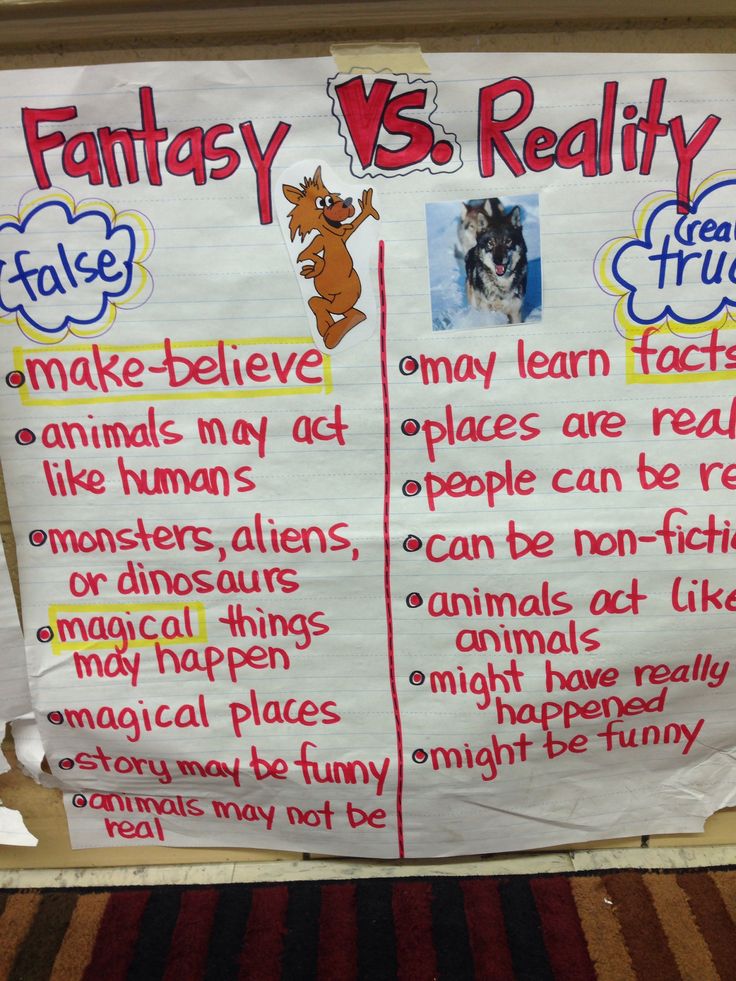 Fantasy VS. Reality
(false)
• make-believe
• animals may act
like humans
• monsters, aliens,
or dinosaurs
• magical things
may happen
• magical places
• story may be funny
• animals may not be
real
(real
true
• may learn facts
• places are real
• people can be re
• can be non-fictio
• animals act like
animals
• might have really
happened
• might be funny